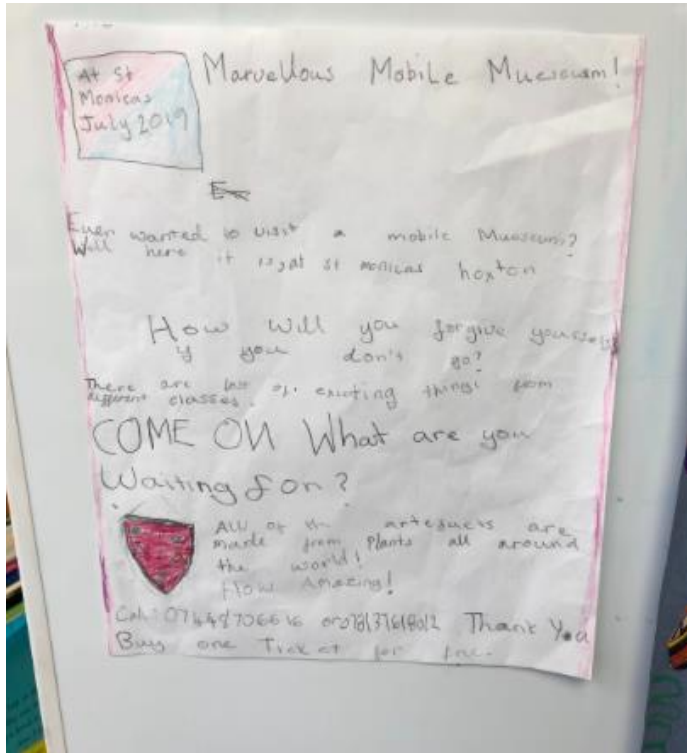 At St
Monicas
July 2019
Marvellous Mobile Muesuam!
Ever wanted to visit a mobile Museum?
Well here it is, at st monicas hoxton
How will you forgive yourself
if you don't go?
There are lots of exciting things from
different classes.
COME ON What are you
Waiting for?
All of the artefacts are
made from Plants all around
the world!
How Amazing!
Call: or Thank You
Buy one Ticket for free.